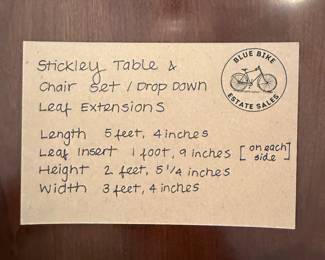 Stickley Table &
Chair Set / Drop Down
Leaf Extensions
BLUE BIKE
ESTATE SALES
Length 5 feet, 4 inches
Leaf Insert 1 foot, 9 inches [on each side]
Height 2 feet, 5 1/4 inches
Width 3 feet, 4 inches